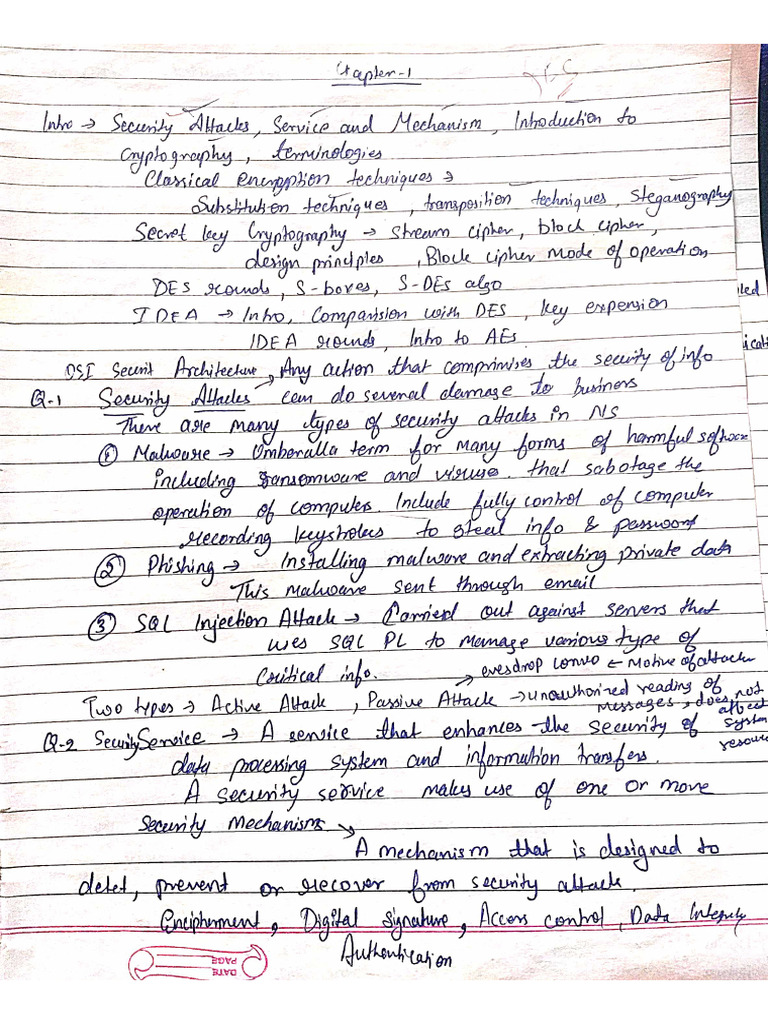 Chapter-1
Intro → Security Attacks, Service and Mechanism, Introduction to
Cryptography, terminologies
Classical encryption techniques →
Substitution techniques, transposition techniques, Steganography
Secret key Cryptography → Stream cipher, block cipher,
design principles, Block cipher mode of operation
DES rounds, S-boxes, S-DES algo
IDEA → Intro, Comparision with DES, key expension
IDEA rounds, Intro to AES.
OSI Securit Architecture, Any action that comprimises the security of info
Q-1 Security Attacks → can do several damage to business
There are many types of security attacks in NS
① Malware → Umberalla term for many forms of harmful software
including ransomware and viruses that sabotage the
operation of computer. Include fully control of computer
recording keystrokes to steal info & password
② Phishing → Installing malware and extracting private data
This malware sent through email
③ SQL Injection Attack → Carried out against servers that
uses SQL PL to manage various type of
Critical info.
→ evesdrop convo ← Motive of attacker
Two types → Active Attack, Passive Attack → unauthorized reading of
messages, does not
affect
system
resource
Q-2 Security Service → A service that enhances the security of
data processing system and information transfers.
A security service makes use of one or more
Security mechanisms →
A mechanism that is designed to
detet, prevent or recover from security attack.
Encipherment, Digital Signature, Access control, Data Integrity
Authentication
DATE
PAGE